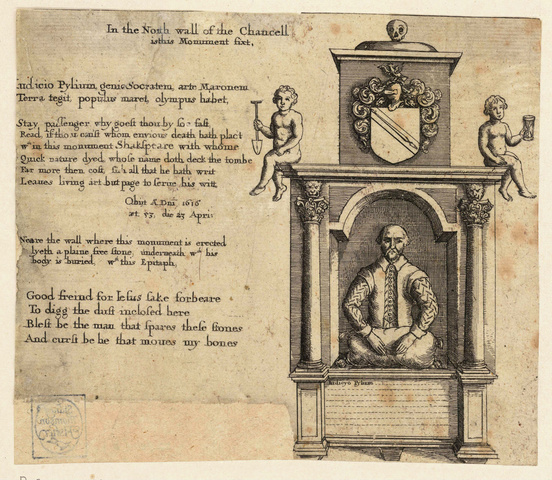 In the North wall of the Chancell
is this Monument fixt.
Iudicio Pylium, genio Socratem, arte Maronem
Terra tegit, populus mæret, olympus habet,
Stay passenger why goest thou by soe fast,
Read, if thou canst whom envious death hath plac't
wth in this monument Shakspeare with whome
Quick nature dyed, whose name doth deck the tombe
Far more then cost, sith all that he hath writ
Leaues living art but page to serue his witt
Obijt Æ Dni 1616
æt 53, die 23 Apri:
Neare the wall where this monument is erected
lyeth a plaine free stone, underneath wch his
body is buried, wth this Epitaph,
Good freind for Iesus sake forbeare
To digg the dust inclosed here
Blest be the man that spares these stones
And curst be he that moues my bones
Iudicyo Pylium